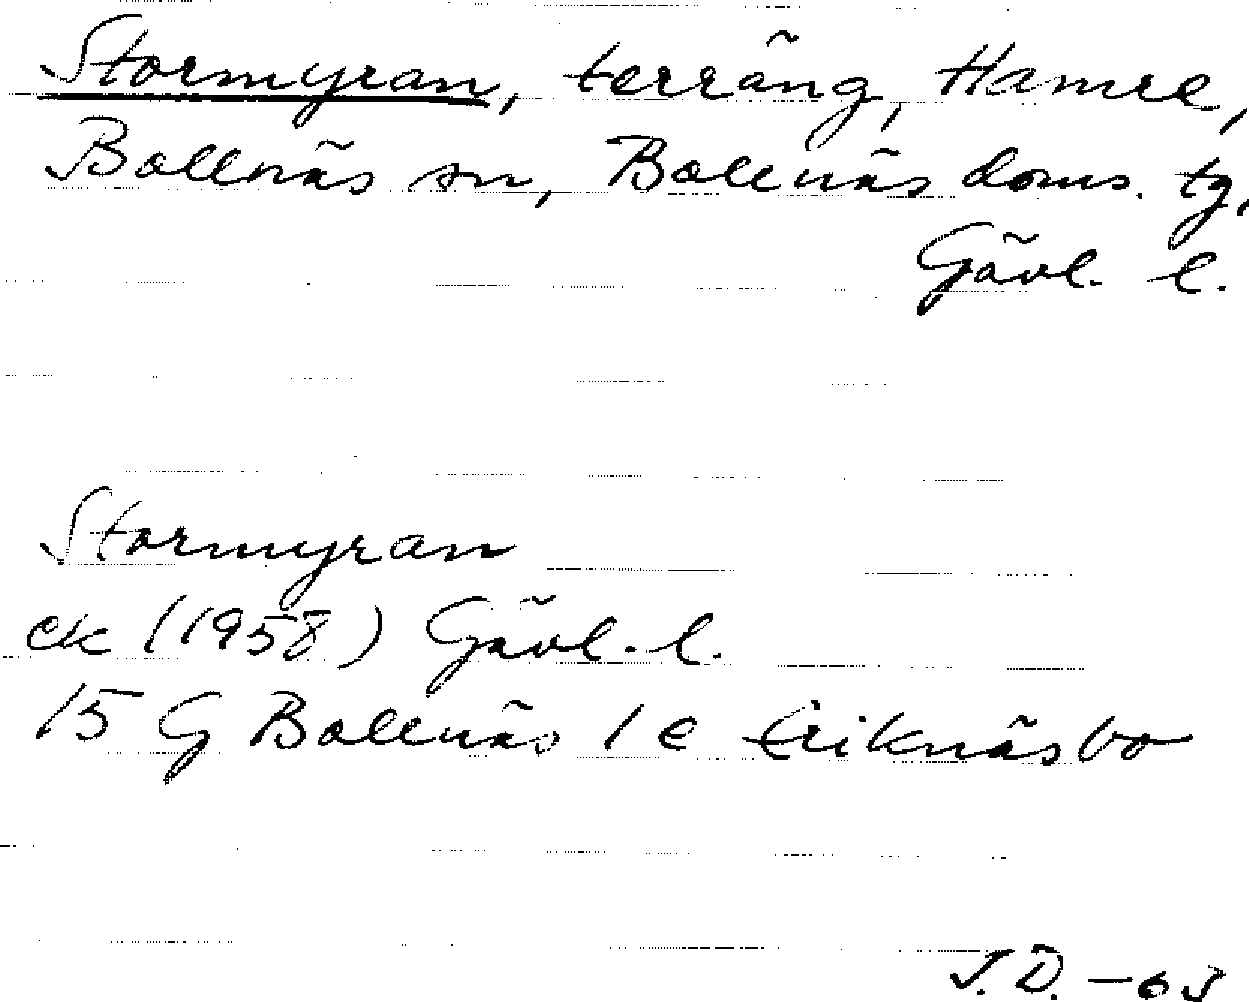 Stormyran, terräng, Hamre,
Bollnäs sn, Bollnäs doms. tg,
Gävl. l.
Stormyran
ek (1958) Gävl. l.
15 G Bollnäs 1 e Eriknäsbo
J.D. -63